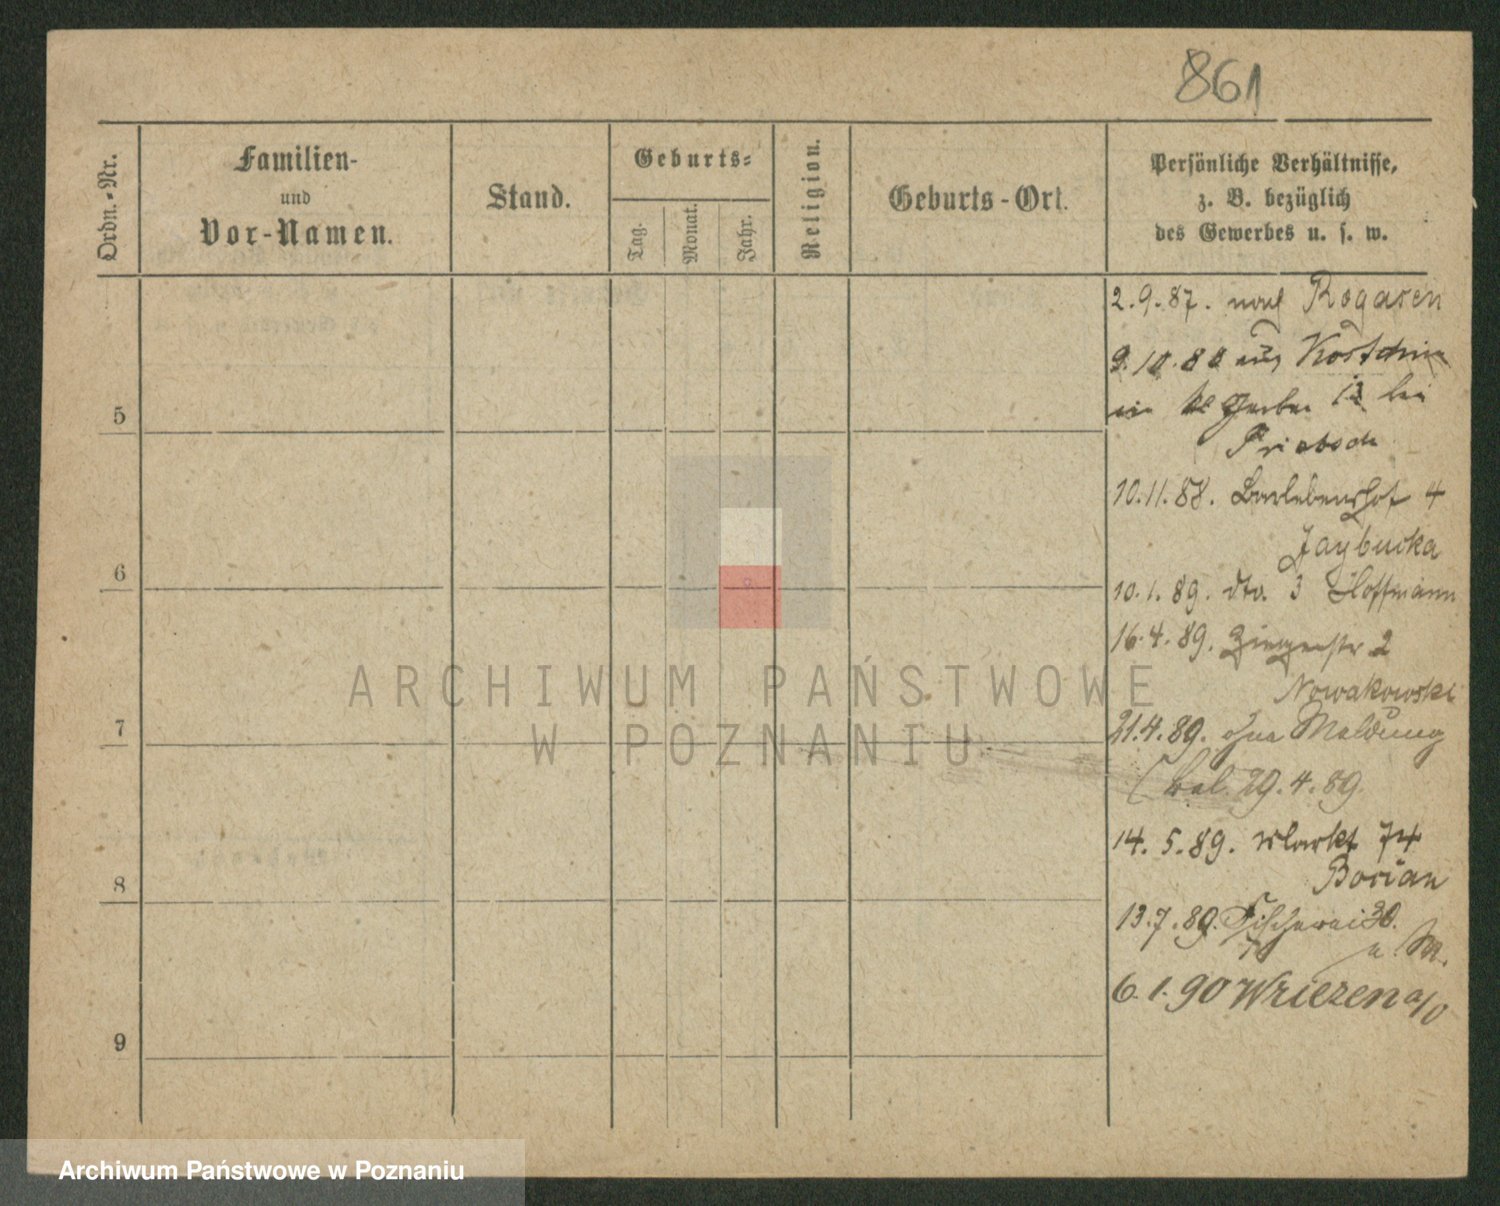 861
Ordn.-Nr.
Familien-
und
Vor-Namen.
Stand.
Geburts-
Tag.
Monat.
Jahr.
Religion.
Geburts-Ort.
Persönliche Verhältnisse,
z. B. bezüglich
des Gewerbes u. s. w.
2.9.87. nach Rogasen
9.10.88 aus Kostschin
Gerber 13 bei
Priebsch
10.11.88. Barlebenshof 4
Jaybucka
10.1.89. dto. 3 Hoffmann
16.4.89. Ziegenstr 2
Nowakowski
21.4.89. ohne Meldung
29.4.89.
14.5.89. Markt 74
Borian
13.7.89. Fischerei 30.
6.1.90 Wriezen a/O
5
6
7
8
9
ARCHIWUM PAŃSTWOWE
W POZNANIU
Archiwum Państwowe w Poznaniu